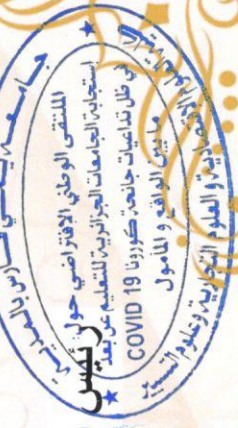 جامعة يحي فارس بالمدية
الملتقى الوطني الإفتراضي حول
إستجابة الجامعات الجزائرية للتعليم عن بعد
في ظل تداعيات جائحة كورونا COVID 19
ما بين الواقع و المأمول
رئيس
كلية العلوم الإقتصادية و العلوم التجارية وعلوم التسيير